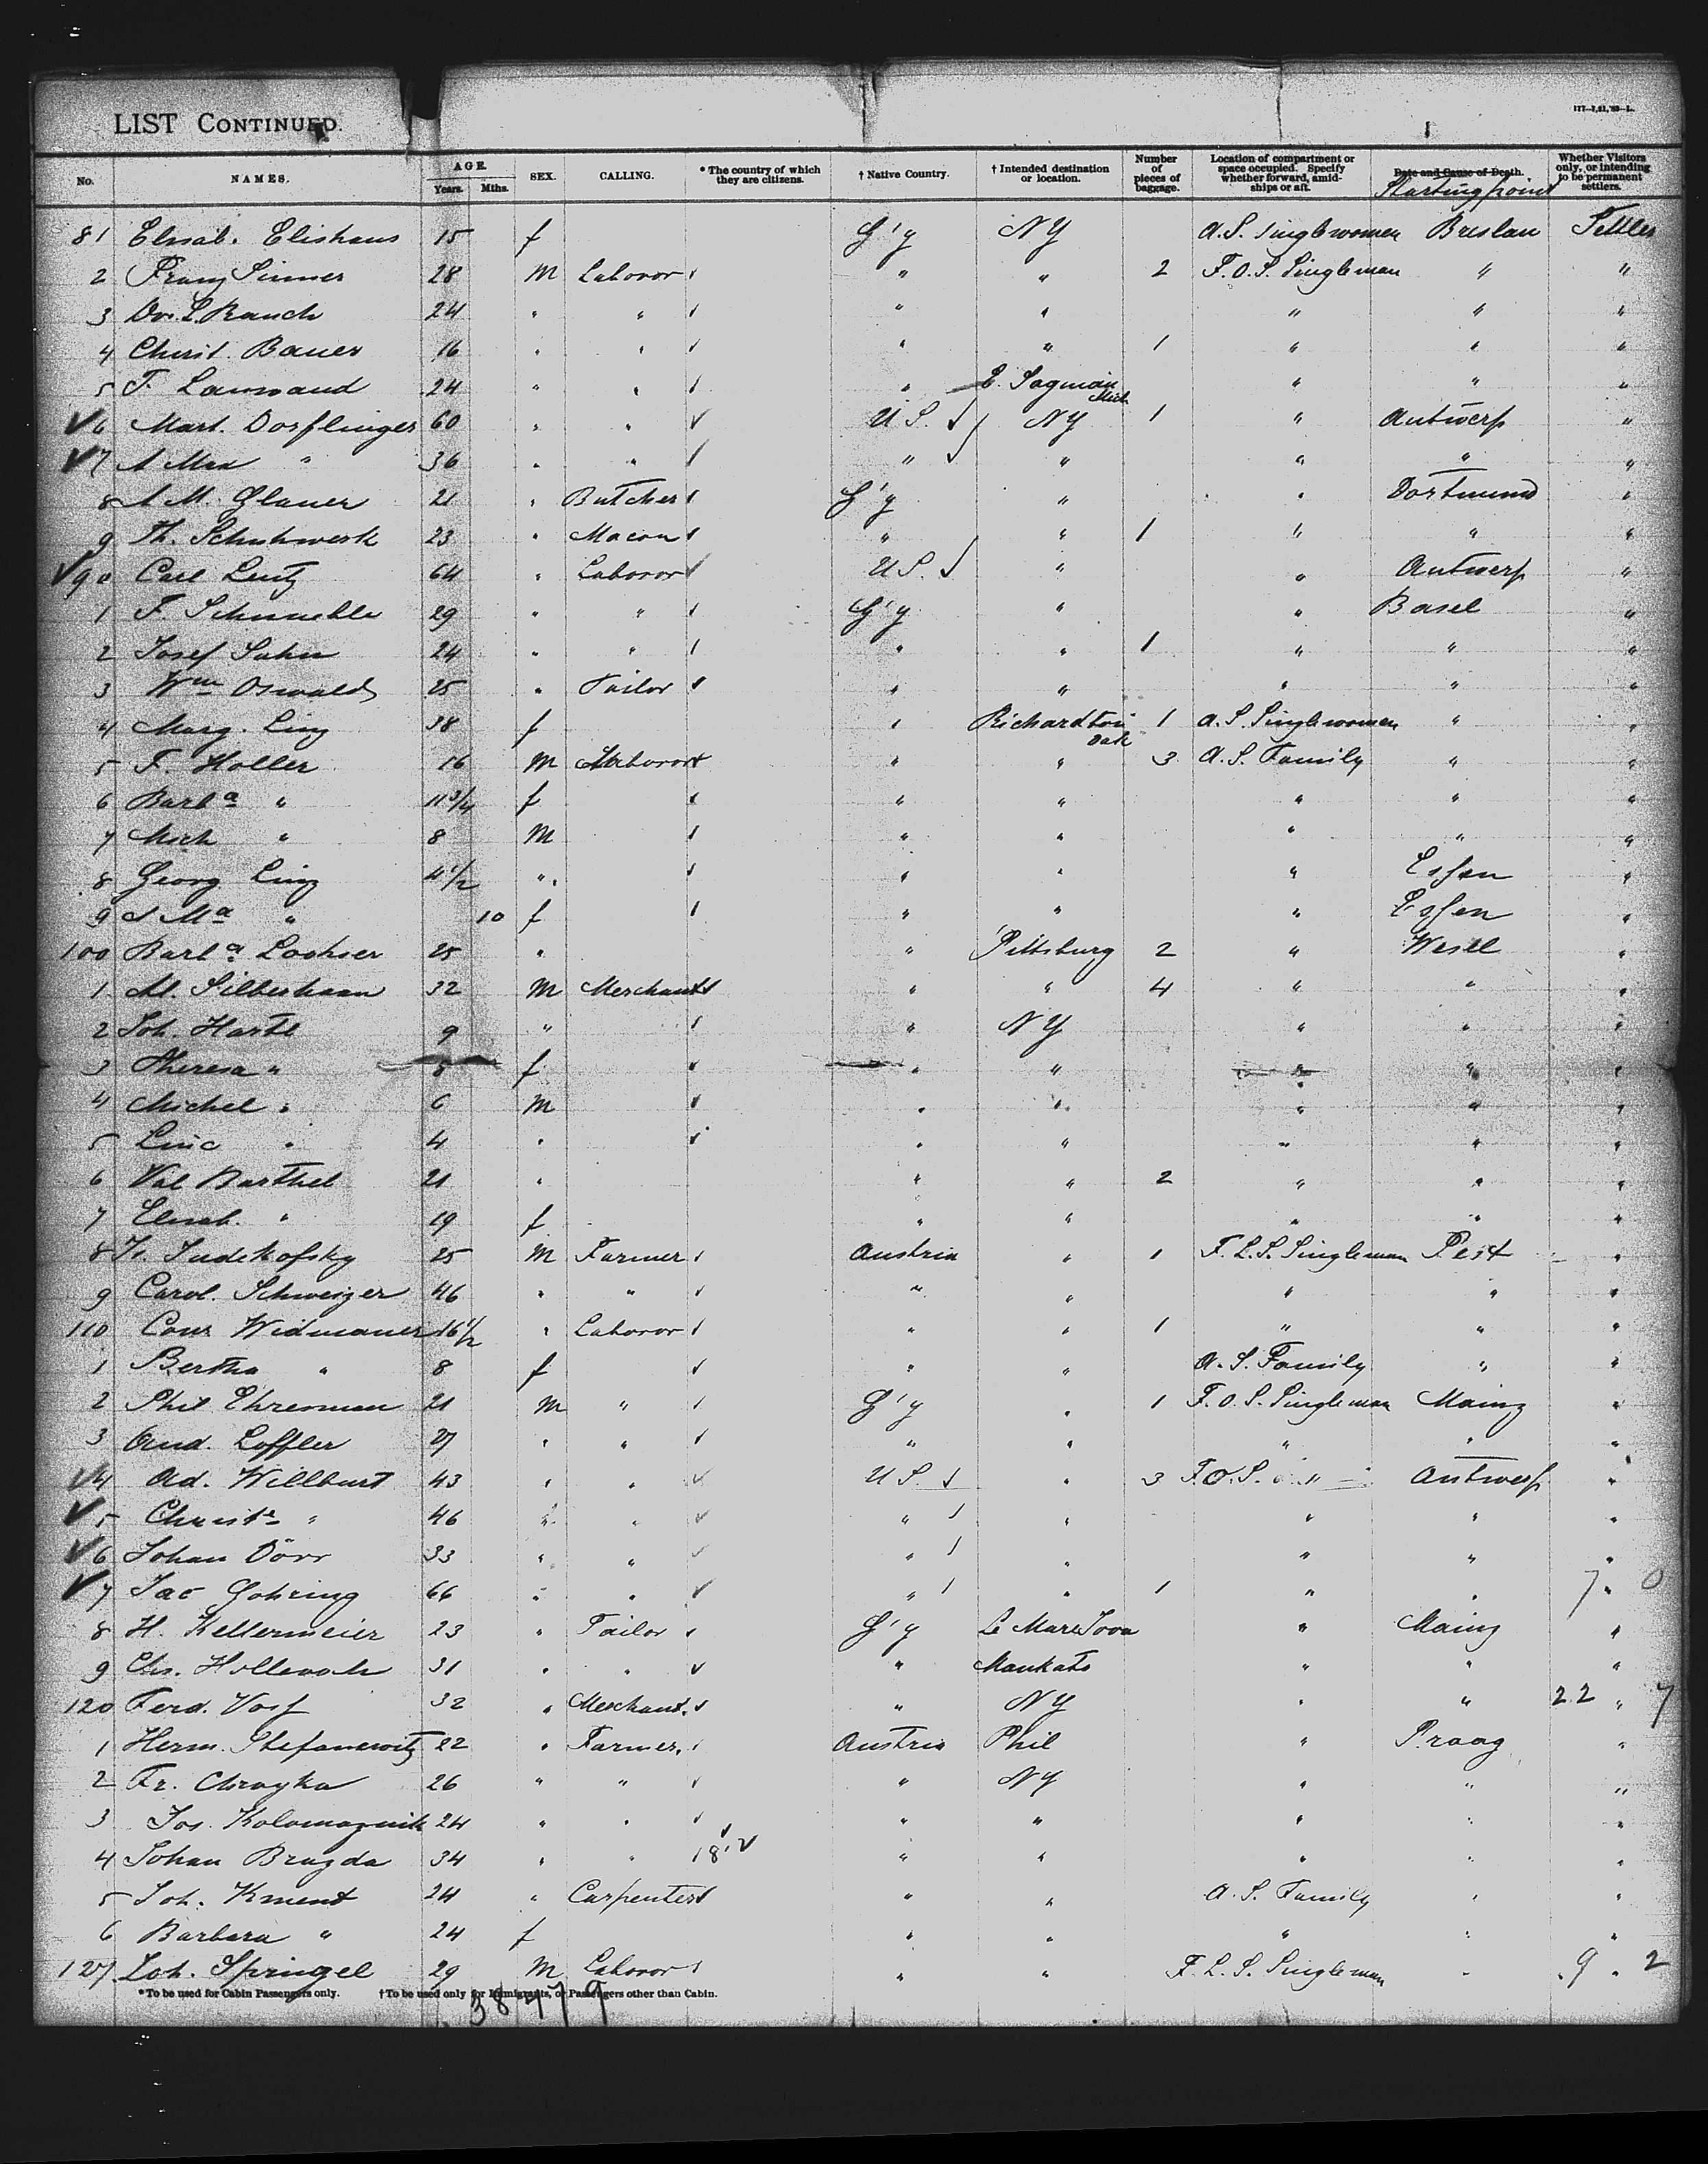 LIST CONTINUED.
177—7,21,'93—L.
No. NAMES. AGE. Years. Mths. SEX. CALLING. * The country of which they are citizens. † Native Country. † Intended destination or location. Number of pieces of baggage. Location of compartment or space occupied. Specify whether forward, amidships or aft. Date and Cause of Death. Starting point Whether Visitors only, or intending to be permanent settlers.
81 Elisab. Elishans 15 f G'y NY A.S. Singlewomen Breslau Settler
2 Franz Sinner 28 M Laboror " " 2 F.O.S. Singleman " "
3 Dr. L. Rauch 24 " " " " " " "
4 Christ. Bauer 16 " " " " 1 " " "
5 F. 24 " " " E. Saginaw Mich " " "
6 Mart. Dorflinger 60 " " U.S. NY 1 " Antwerp "
7 A Max " 36 " " " " " " "
8 A M. Glauer 21 " Butcher G'y " " Dortmund "
9 Th. Schuhwerk 23 " Macon " " 1 " " "
90 Carl Lentz 64 " Laboror U.S. " " Antwerp "
1 F. Schnueble 29 " " G'y " " Basel "
2 Josef Sahn 24 " " " " 1 " " "
3 Wm Oswald 25 " Tailor " " " " "
4 Marg. Ling 38 f " Richardton Dak 1 A.S. Singlewomen " "
5 F. Holler 16 M Laboror " " 3 A.S. Family " "
6 Barba " 11 3/4 f " " " " "
7 Mich " 8 M " " " " "
8 Georg Ling 4 1/2 " " " " Essen "
9 A Ma " 10 f " " " Essen "
100 Barba Lochser 25 " " Pittsburg 2 " Wesel "
1 Al. Silberhaan 32 M Merchant " " 4 " " "
2 Joh. Hartl 9 " " NY " " "
3 Theresa " 8 f " " " " "
4 Michel " 6 M " " " " "
5 " 4 " " " " " "
6 Val Barthel 21 " " " 2 " " "
7 Elisab. " 19 f " " " " "
8 Is. Judikofsky 25 M Farmer Austria " 1 F.L.S. Singleman Pest "
9 Carol. Schweizer 46 " " " " " " "
110 Conr Widmauer 16 1/2 " Laboror " " 1 " " "
1 Bertha " 8 f " " A.S. Family " "
2 Phil. Ehresman 21 M " G'y " 1 F.O.S. Singleman Mainz "
3 And. Loffler 27 " " " " " " "
14 Ad. Willburt 43 " " U.S. " 3 F.O.S. " Antwerp "
5 " 46 " " " " " " "
6 Johan Dörr 33 " " " " " " "
7 Jac Gohring 66 " " " " 1 " " 7 " 0
8 H. Kellermeier 23 " Tailor G'y Le Mars Iova " Mainz "
9 Chs. 31 " " " Mankato " " "
120 Ferd. Voss 32 " Merchant. " NY " " 22 " 7
1 Herm. Stefanowitz 22 " Farmer. Austria Phil " Praag "
2 Fr. 26 " " " NY " " "
3 Jos. Kolomaznik 24 " " " " " " "
4 Johan Brazda 34 " " 18 " " " " "
5 Joh. Kment 24 " Carpenter " " A.S. Family " "
6 Barbara " 24 f " " " " "
127. Joh. Springel 29 M Laboror " " F.L.S. Singleman " 9 " 2
* To be used for Cabin Passengers only. † To be used only for Immigrants, or Passengers other than Cabin.
38479